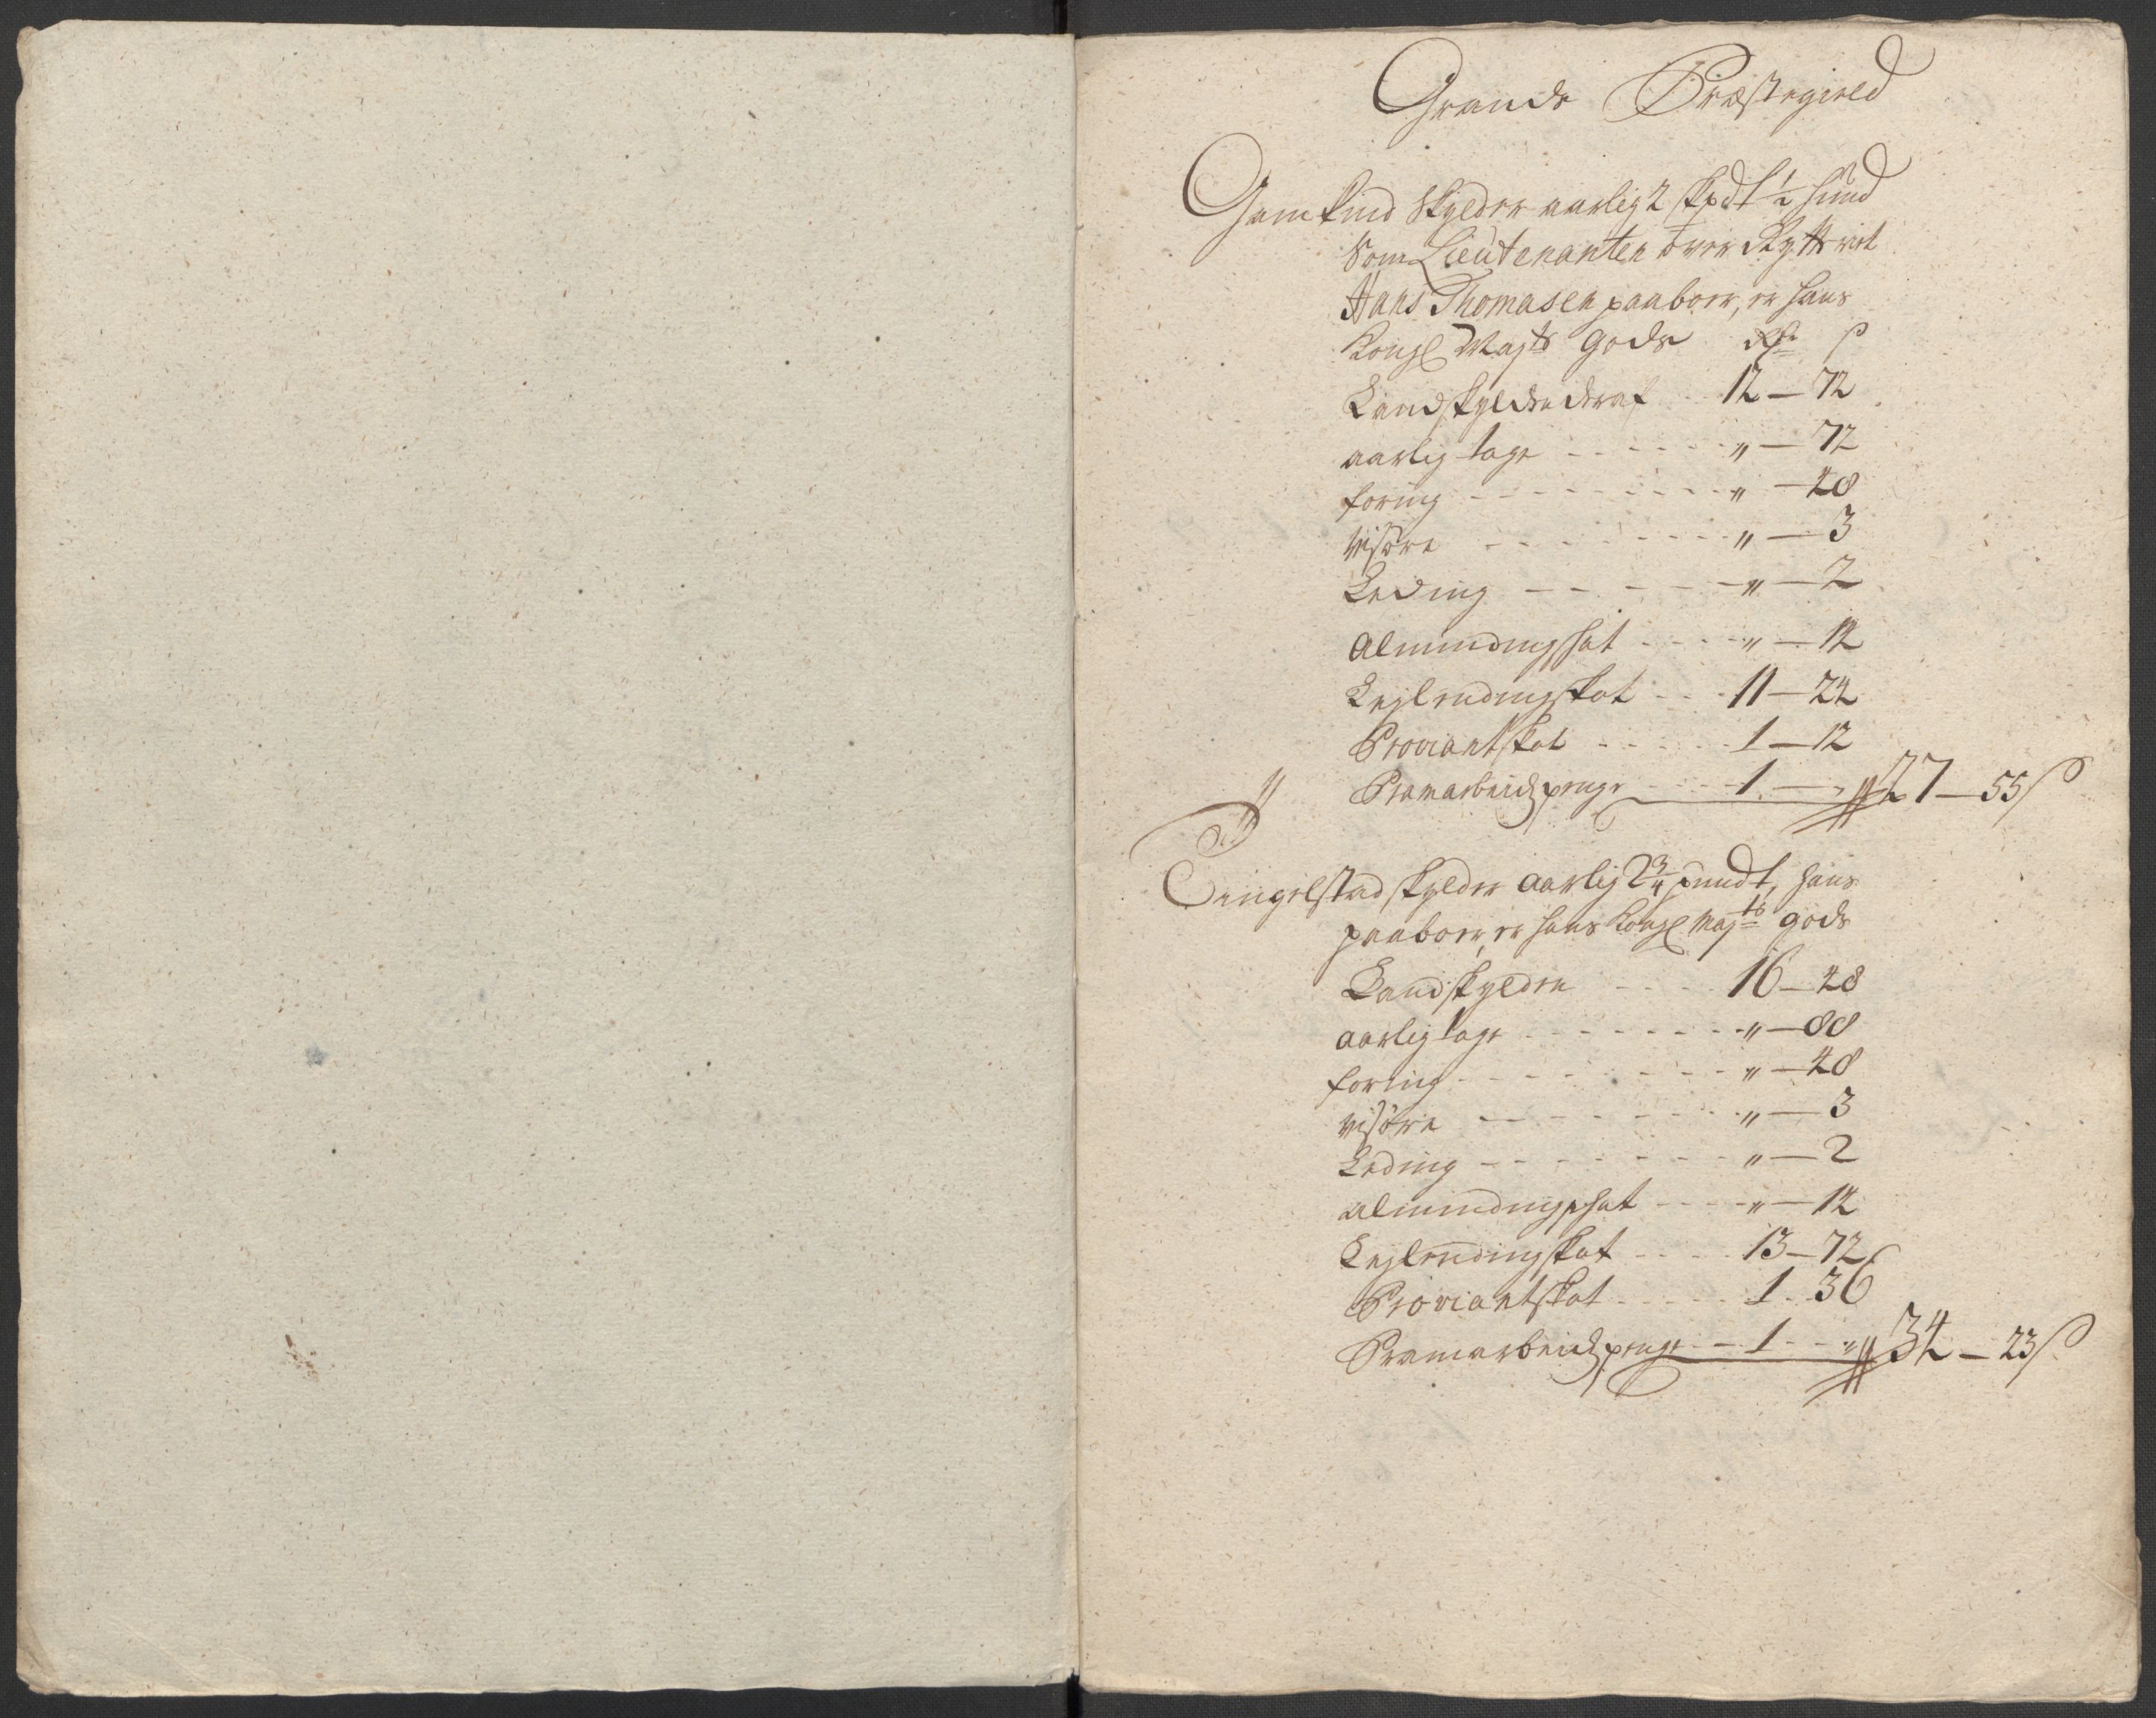 Grande Præstegield
Gamkind skylder aarlig 2 skpdt ½ hund
Som Lieutenanten over skytteriet
Hans Thomasen paaboer, er hans
Kongl Maÿts Gods Rdr ß
Landskylden deraf 12 — 72
aarlig tage „ — 72
foring „ — 48
Wisøre „ — 3
Leding „ — 2
Almindings hat „ — 14
Leylendingskat 11 — 24
Proviantskat 1 — 12
Pramarbeidspenge 1 — „ 27 — 55 ß
Tingelstad skylder aarlig 2¾ pundt, hans
paaboer, er hans Kongl Maÿts gods
Landskylden 16 — 48
aarlig tage „ — 88
foring „ — 48
Wisøre „ — 3
Leding „ — 2
almindings hat „ — 14
Leylendingskat 13 — 72
Proviantskat 1 . 36
Pramarbeidspenge 1 - „ 34 — 23 ß